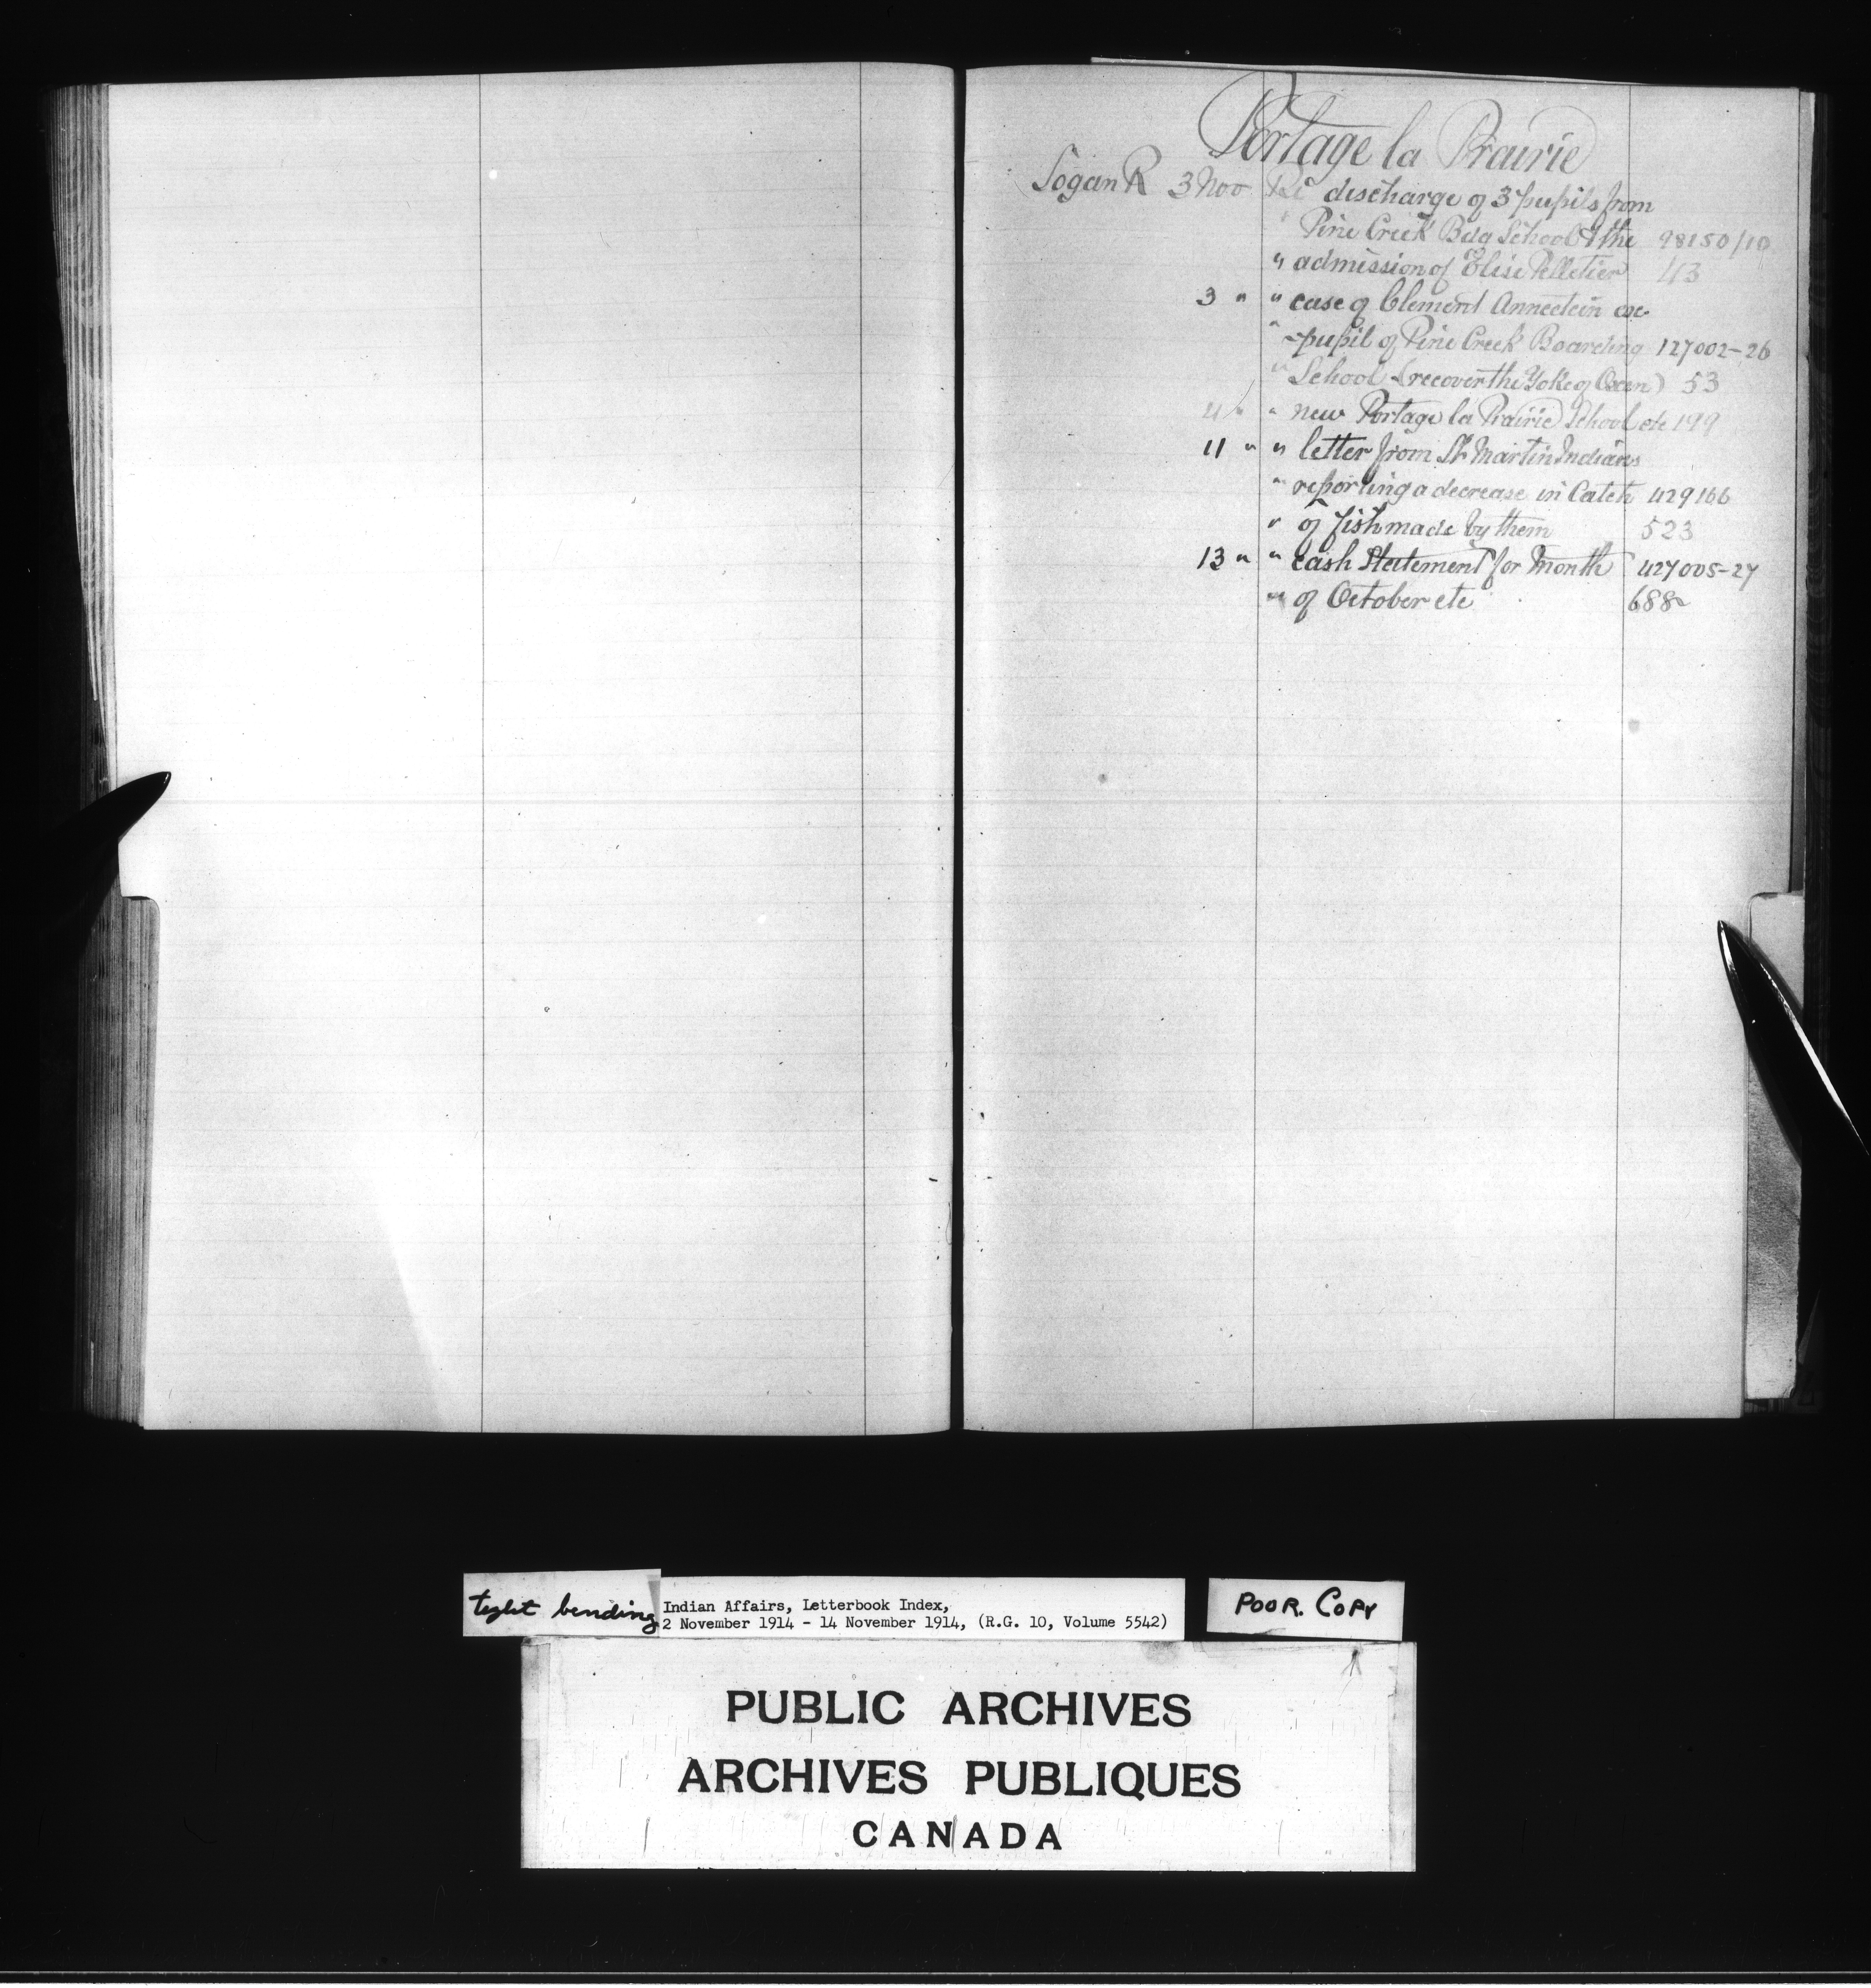 Portage la Prairie
Logan R 3 Nov Re discharge of 3 pupils from
" Pine Creek Bdg School & the 98150/10
" admission of Elise Pelletier 43
3 " " case of Clement ex-
" -pupil of Pine Creek Boarding 127002-26
" School (recover the Yoke of Oxen) 53
4 " " new Portage la Prairie School etc 199
11 " " letter from St Martin Indians
" reporting a decrease in Catch 429166
" of fish made by them 523
13 " " cash Statement for Month 427005-27
" of October etc 688
tight bending
Indian Affairs, Letterbook Index,
2 November 1914 - 14 November 1914, (R.G. 10, Volume 5542)
POOR. COPY
PUBLIC ARCHIVES
ARCHIVES PUBLIQUES
CANADA